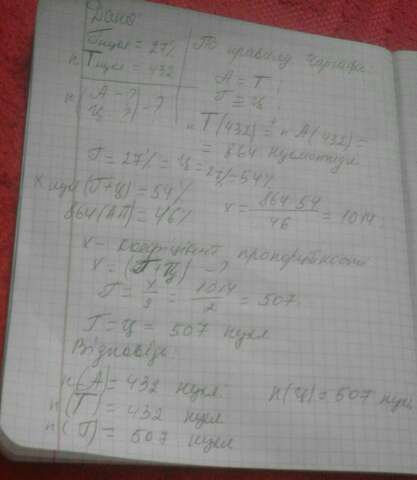 Дано:
Г нукл = 27%
n Т нукл = 432
n( А - ?
Ц - ? ) - ?
По правилу Чаргафа:
А = Т
Г = Ц
n Т(432) + n А(432) =
= 864 нуклеотиди
Г = 27% = Ц = 27% = 54%
X нукл (Г+Ц) = 54%
864 (АТ) = 46%
x = 864·54 / 46 = 1014
x - коефіцієнт пропорційності
x = (Г+Ц) - ?
Г = x/2 = 1014/2 = 507
Г = Ц = 507 нукл
Відповідь:
n(А) = 432 нукл.
n(Т) = 432 нукл
n(Г) = 507 нукл
n(Ц) = 507 нукл